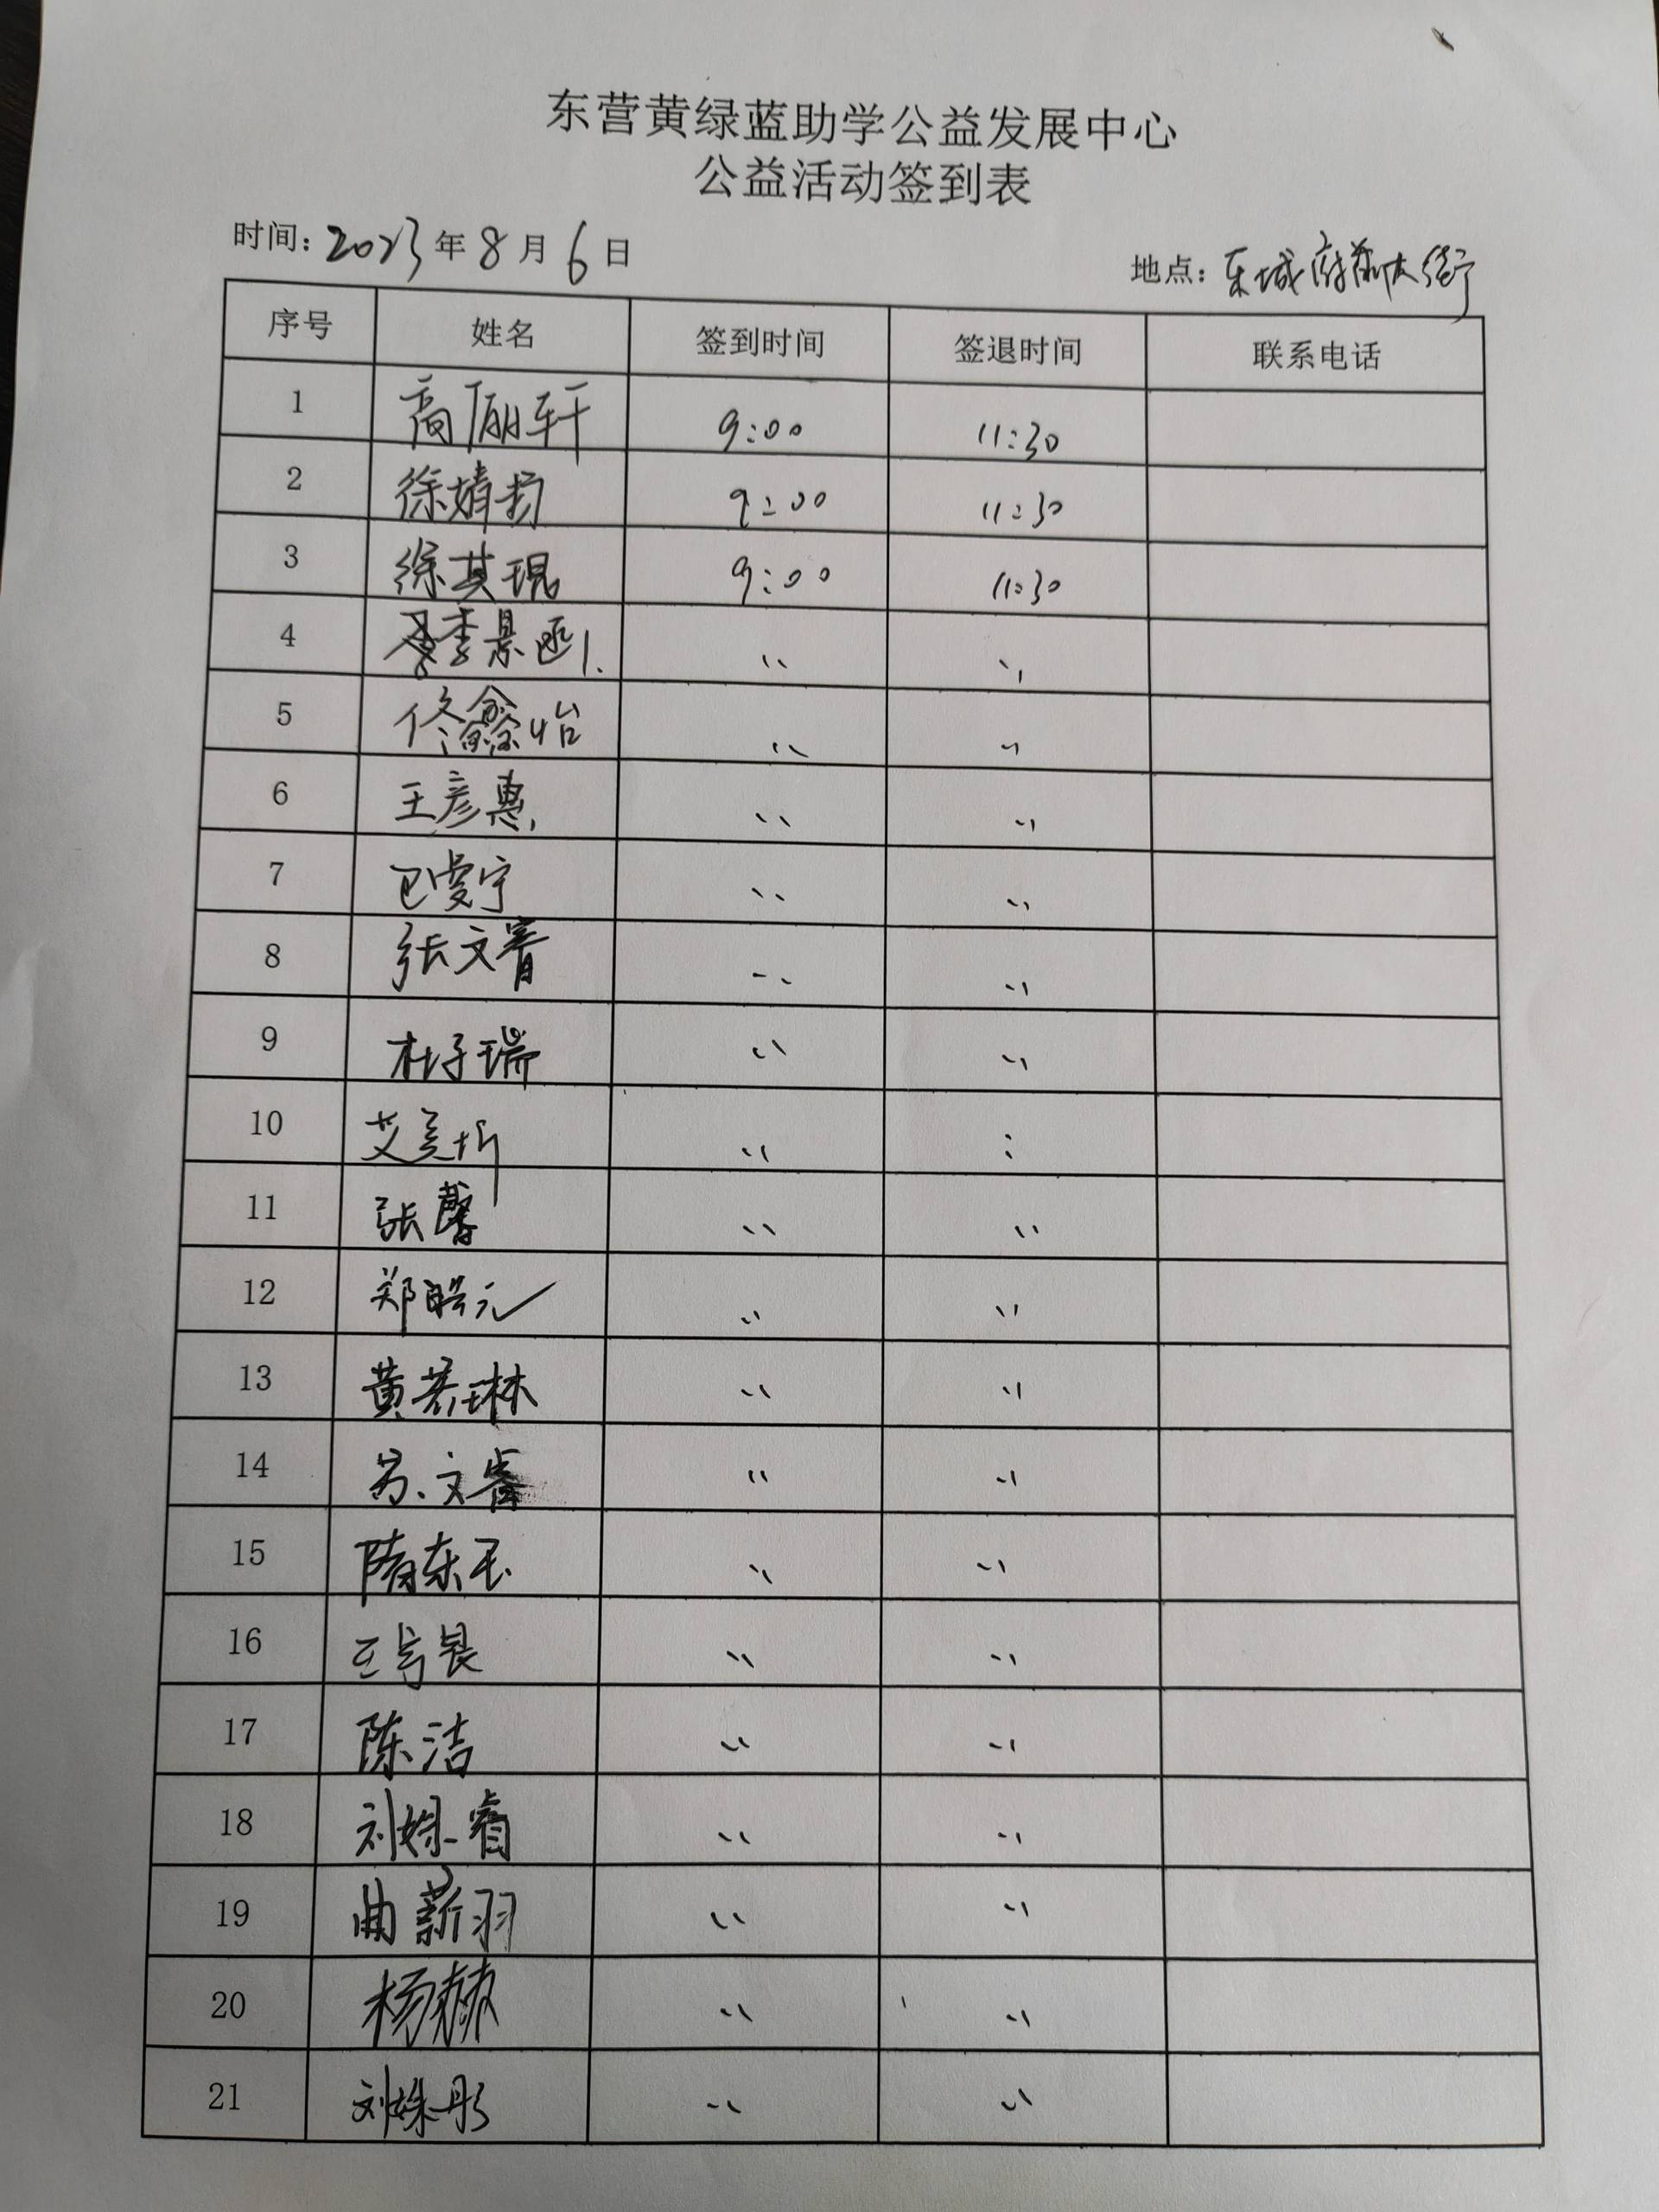 东营黄绿蓝助学公益发展中心
公益活动签到表
时间：2023年8月6日 地点：东城府前大街
序号 姓名 签到时间 签退时间 联系电话
1 高 轩 9:00 11:30
2 徐婧 9:00 11:30
3 徐其琨 9:00 11:30
4 李景函 〃 〃
5 佟鑫怡 〃 〃
6 王彦惠 〃 〃
7 巴雯宁 〃 〃
8 张文睿 〃 〃
9 杜子瑞 〃 〃
10 艾美 〃 〃
11 张馨 〃 〃
12 郑皓元 〃 〃
13 黄若琳 〃 〃
14 文睿 〃 〃
15 隋东玉 〃 〃
16 王 〃 〃
17 陈洁 〃 〃
18 刘 睿 〃 〃
19 曲薪羽 〃 〃
20 杨赫 〃 〃
21 刘姝彤 〃 〃